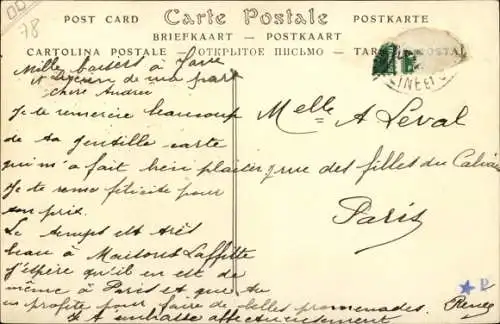 78
POST CARD Carte Postale POSTKARTE
BRIEFKAART — POSTKAART
CARTOLINA POSTALE — ОТКРЫТОЕ ПИСЬМО — TAR POSTAL
SEINE ET O
Mille baisers à
A Lucien de ma part
chère Andrée
Je te remercie beaucoup
de ta gentille carte
qui m'a fait bien plaisir
Je te félicite pour
ton prix.
Le temps est très
beau à Maisons Laffitte
j'espère qu'il en est de
même à Paris et que tu
en profite pour faire de belles promenades.
Je t'embrasse affectueusement
Renée
Melle A Leval
rue des filles du Calvaire
Paris